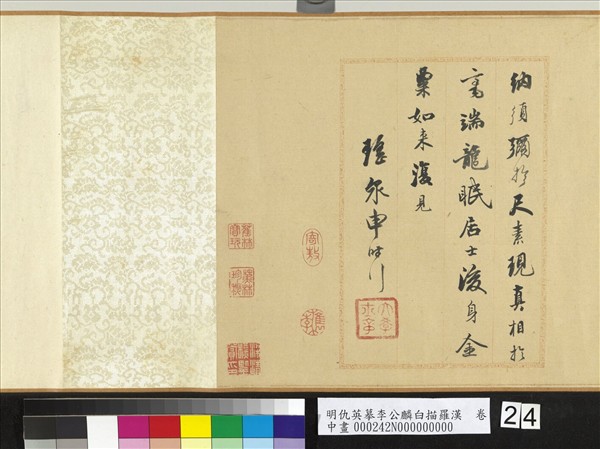 納須彌於尺素現真相於
毫端龍眠居士後身金
粟如来復見
瑤泉申時行
明仇英摹李公麟白描羅漢 卷
中畫000242N000000000
24